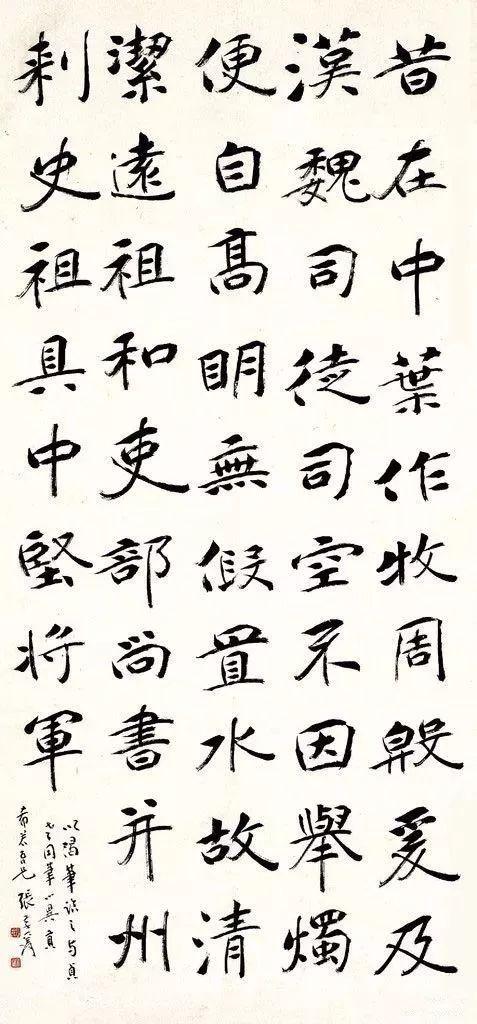 昔在中葉作牧周殷爰及
漢魏司徒司空不因舉燭
便自髙明無假置水故清
潔遠祖和吏部尚書并州
刺史祖具中堅將軍
以渴筆臨之与
同筆小異
吾兄 張爰